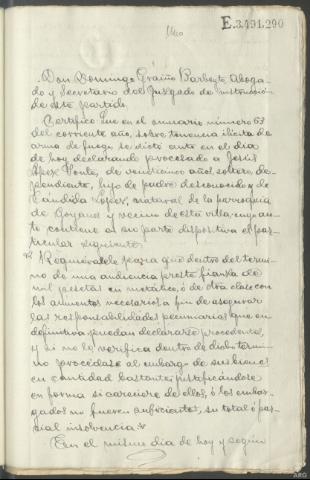 E.3.491.290
Don Domingo Graíño Barbeyto Aboga-
do y Secretario del Juzgado de Instrucción
de este partido.
Certifico: Que en el sumario número 63
del corriente año, sobre tenencia ilícita de
arma de fuego se dictó auto en el día
de hoy declarando procesado a Jesús
López de veintiun años, soltero, de-
pendiente, hijo de padre desconocido y de
Cándida López, natural de la parroquia
de y vecino de esta villa, cuyo au-
to contiene al en parte dispositiva el par-
ticular siguiente:
"Requiérasele para que dentro del térmi-
no de una audiencia preste fianza de
mil pesetas en metálico, ó de otra clase con
los aumentos necesarios, a fin de asegurar
las responsabilidades pecuniarias que en
definitiva puedan declararse procedentes,
y si no lo verifica dentro de dicho térmi-
no procédase al embargo de sus bienes
en cantidad bastante, justificándose
en forma si careciere de ellos, ó los embar-
gados no fueren suficientes, su total ó par-
cial insolvencia."
En el mismo día de hoy y según